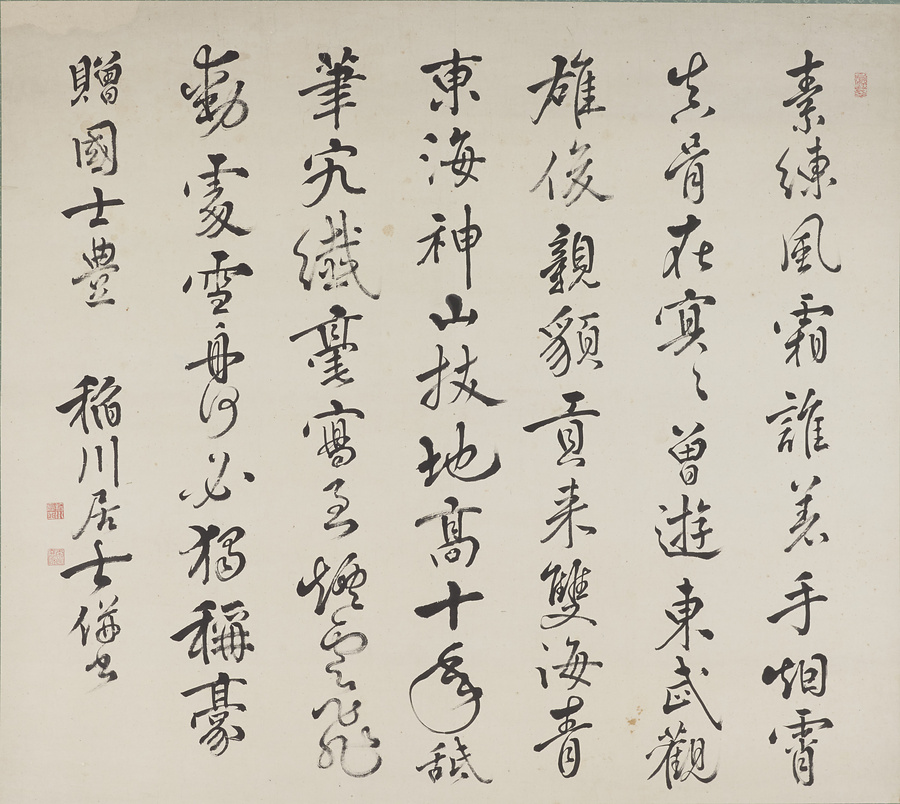 素練風霜誰着手烟霄
真骨在冥々曽遊東武觀
雄俊親貌貢来雙海青
東海神山拔地高十年舐
筆究纖毫寫至煙雲飛
動處雪舟何必獨稱豪
贈國士豊 稲川居士併書